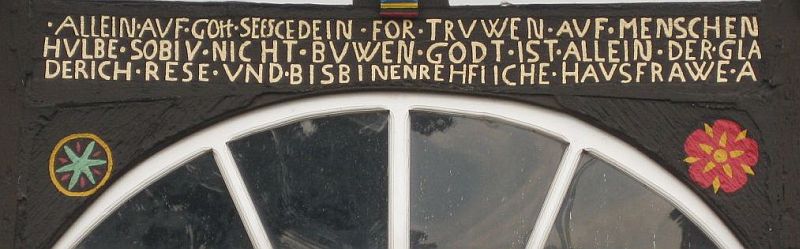 ·ALLEIN·AVF·GOTT·SEESCEDEIN·FOR·TRVWEN·AVF·MENSCHEN
HVLBE·SOBIV·NICHT·BVWEN·GODT·IST·ALLEIN·DER·GLA
DERICH·RESE·VND·BISBINENREHFLICHE·HAVSFRAWE·A